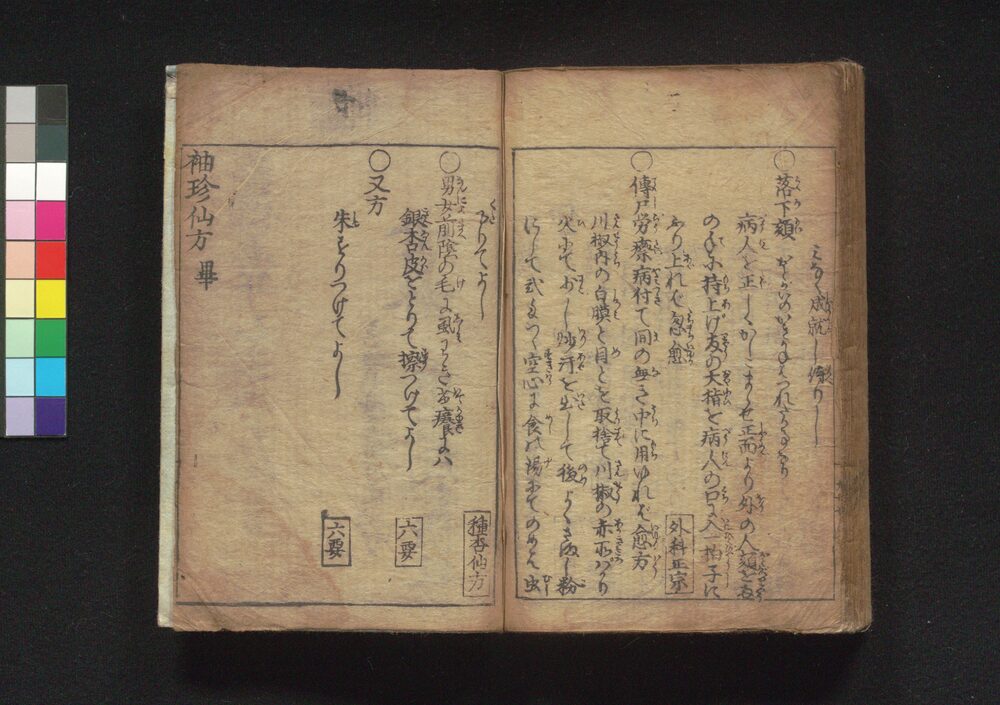 こなく成就し侍りし
○落下頦 おとがいのかきがねはづれたるなり
病人を正しくかしこまらせ正面より外の人頦を左
の手にて持上げ右の大指を病人の口に入一拍子に
ふり上れば忽愈
外科正宗
○傳尸労瘵病付て間の無き中に用ゆれば愈方
川椒内の白膜と目とを取捨て川椒の赤ばかり
火にて少し炒汗を出して後よくさまし粉
にして弐匁づつ空心に食の湯にてのめば虫
くだりてよし
種杏仙方
○男女前陰の毛に風わきて痒きには
銀杏皮をとりて擦つけてよし
六要
○又方
朱をすりつけてよし
六要
袖珍仙方 畢